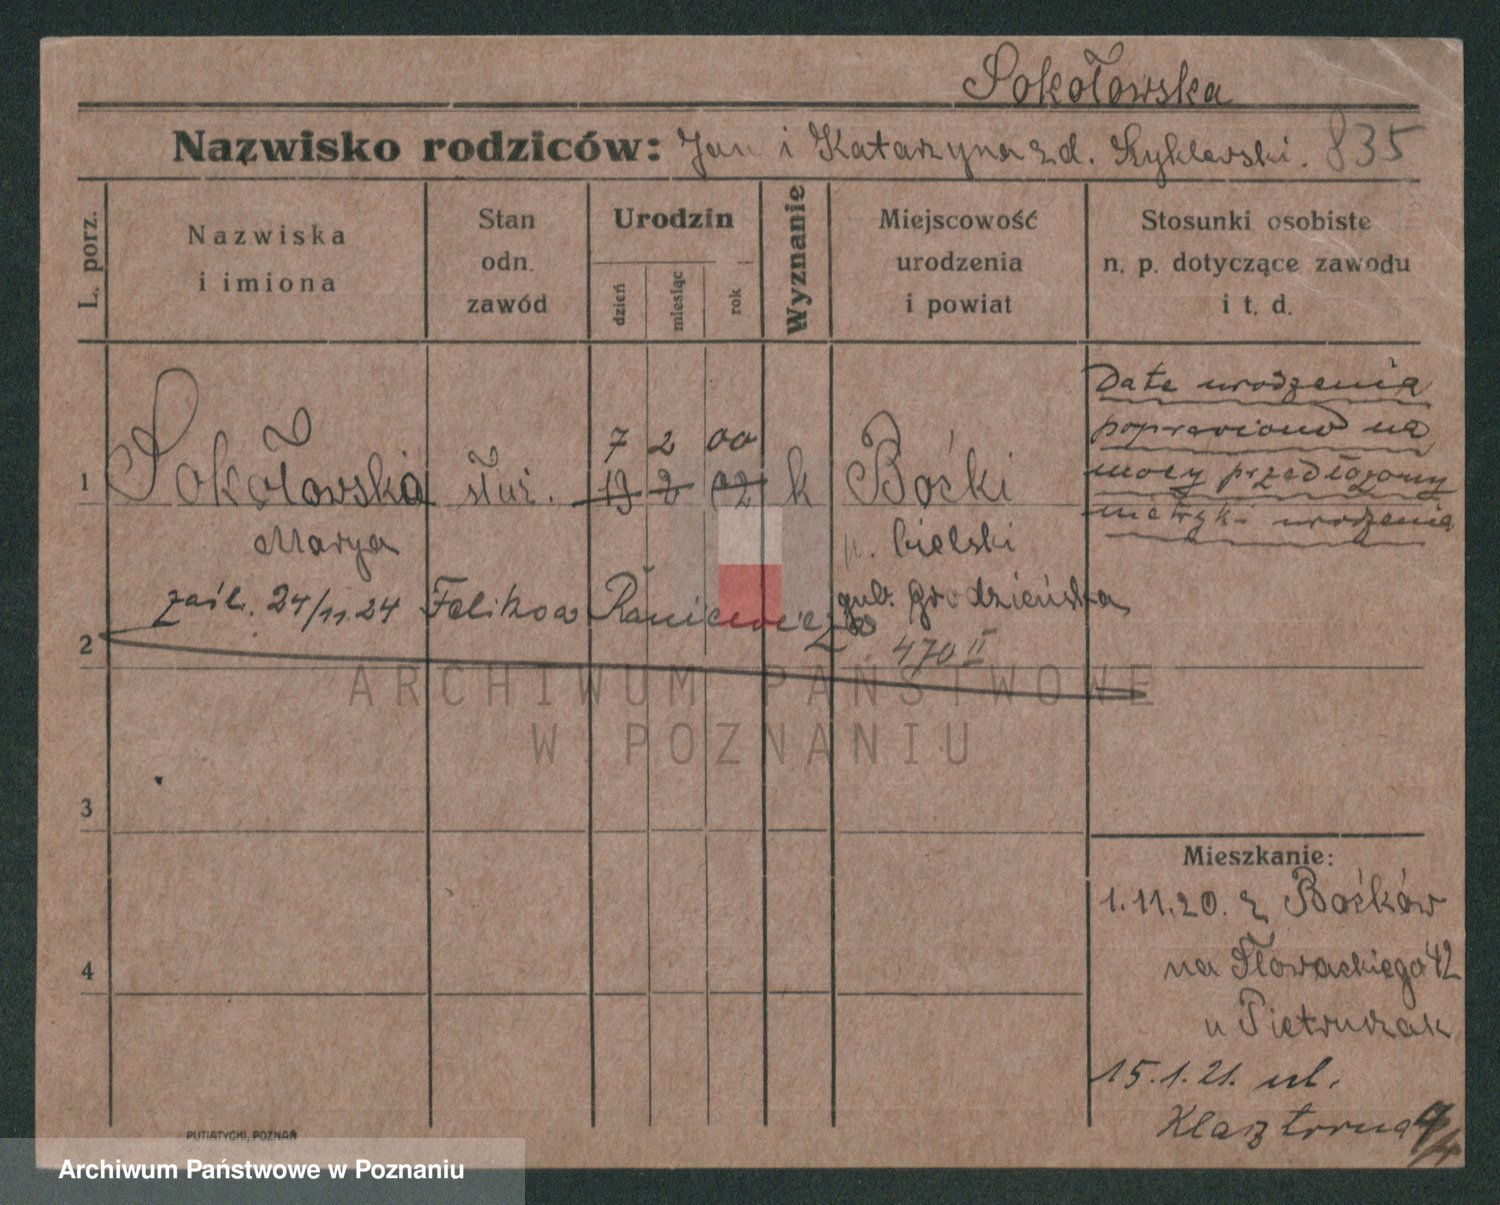 Sokołowska
Nazwisko rodziców: Jan i Katarzyna zd. 835
L. porz.
Nazwiska
i imiona
Stan
odn.
zawód
Urodzin
dzień
miesiąc
rok
Wyznanie
Miejscowość
urodzenia
i powiat
Stosunki osobiste
n. p. dotyczące zawodu
i t. d.
Date urodzenia
poprawiono na
mocy przedłożony
metryki urodzenia
7 2 00
1 Sokołowska służ. 19 2 02 k Boćki
Marya p. bielski
zaśl. 24/11.24 Feliksa gub. grodzieńska
2 470 II
ARCHIWUM PAŃSTWOWE
W POZNANIU
3
4
Mieszkanie:
1.11.20. z Boćków
na Słowackiego 42
u Pietruczak
15.1.21. ul.
Klasztorna
PUTIATYCKI, POZNAŃ
Archiwum Państwowe w Poznaniu